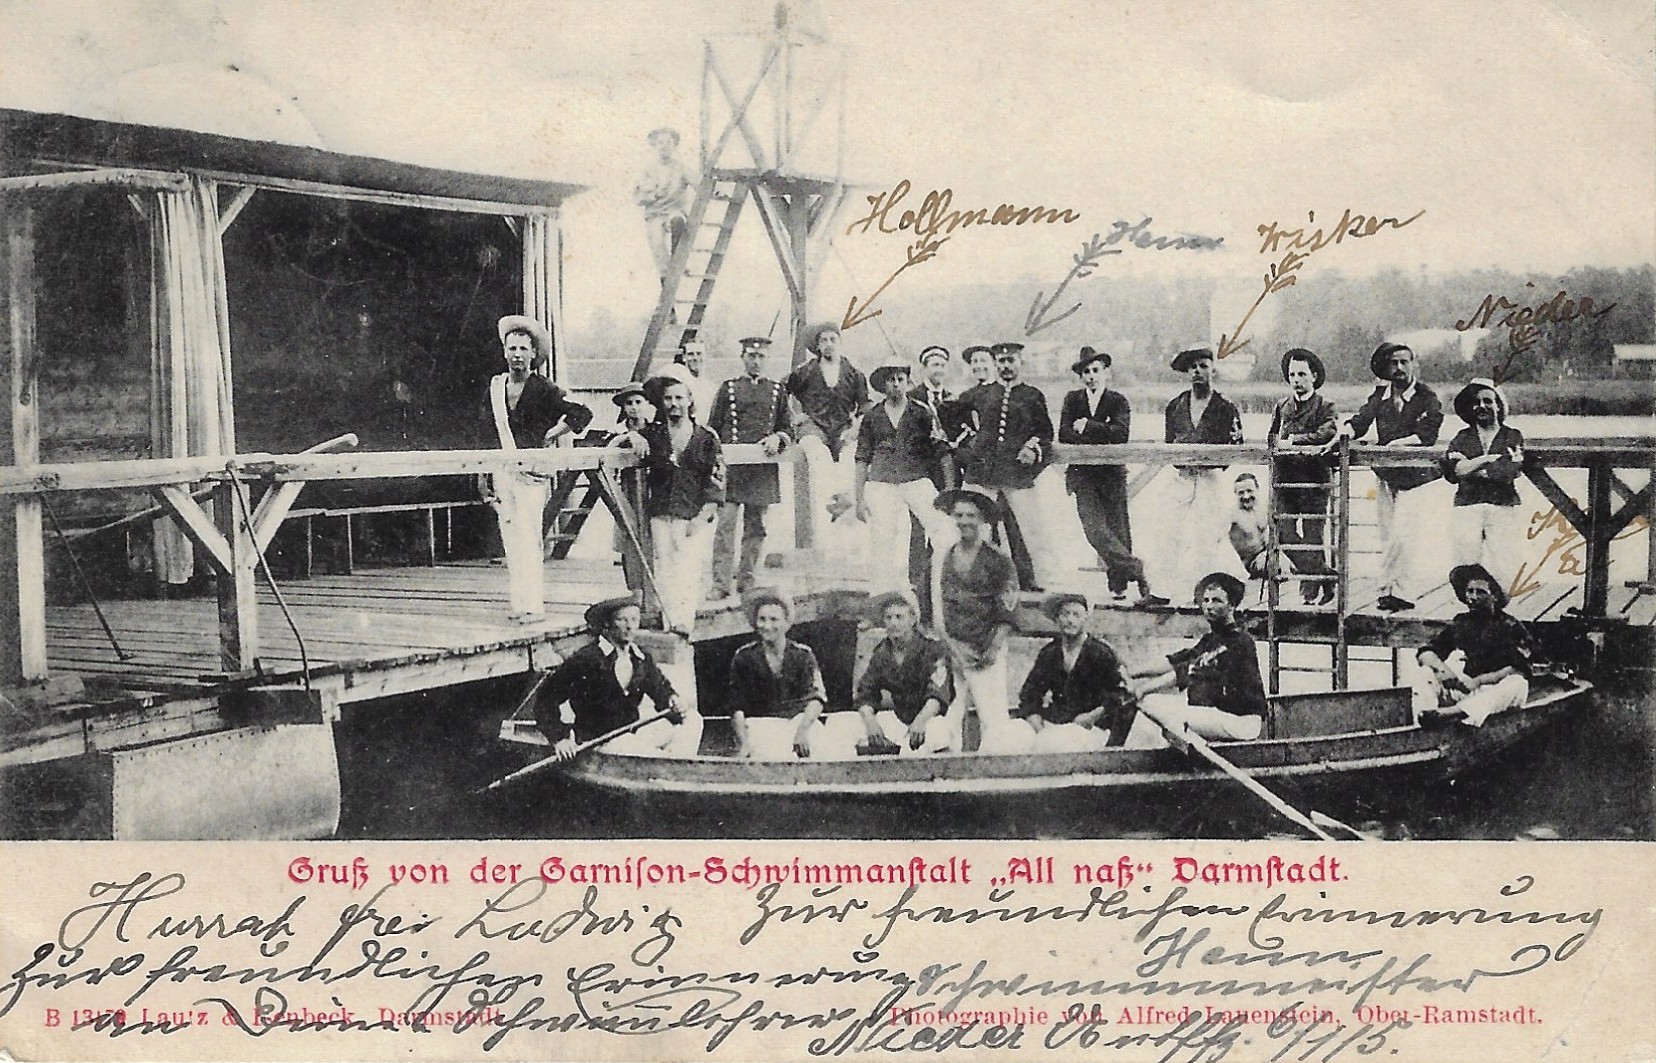 Hollmann
Henn
Wisker
Nieder
Gruß von der Garnison-Schwimmanstalt „All naß“ Darmstadt.
Hurrah frei Ludwig
Zur freundlichen Erinnerung
Zur freundlichen Erinnerung
an Deine Schwimmlehrer
Henn
Schwimmmeister
B 13179 Lautz & Isenbeck, Darmstadt.
Photographie von Alfred Lauenstein, Ober-Ramstadt.
Nieder